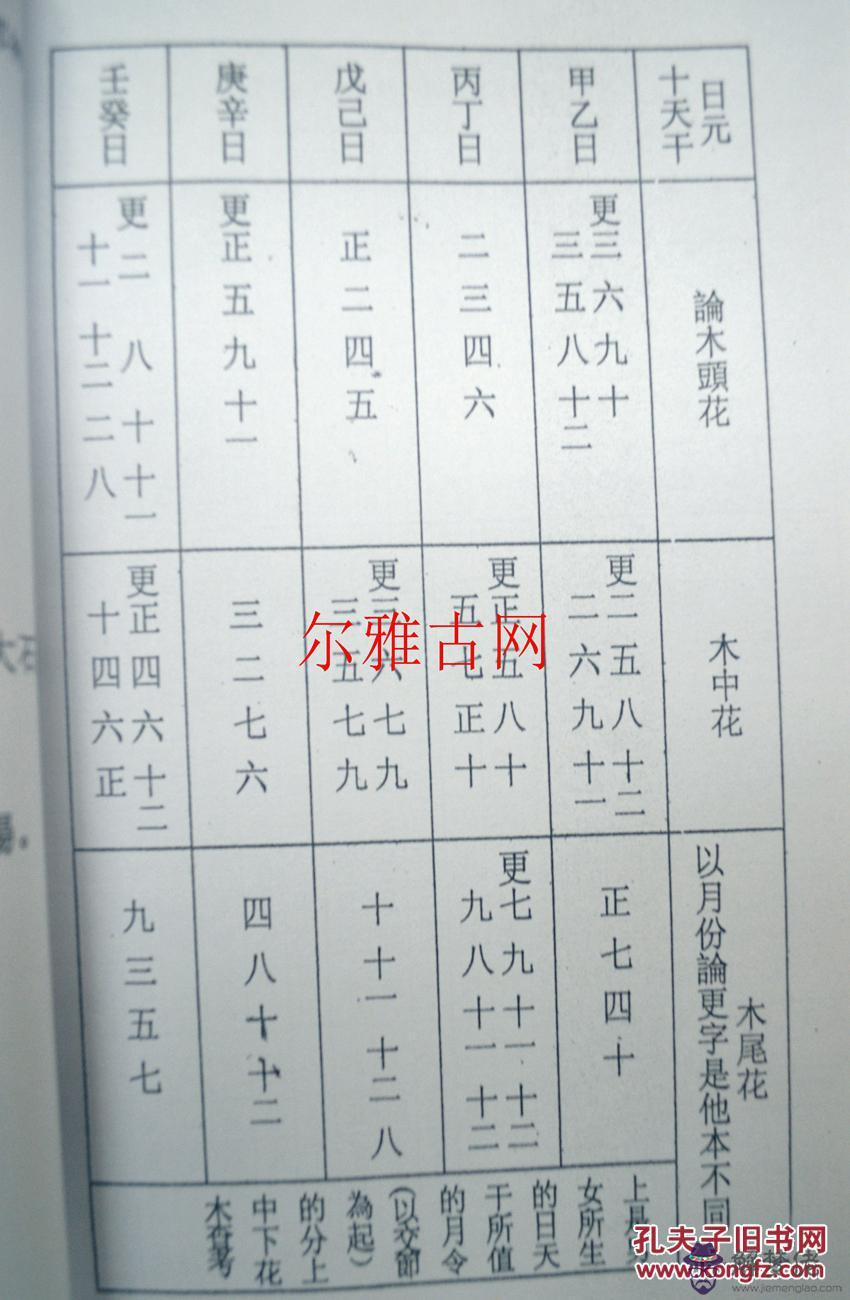 日元
十天干
論木頭花
木中花
木尾花
以月份論更字是他本不同
甲乙日
更三六九十
三五八十二
更二五八十二
二六九十一
正七四十
丙丁日
二三四六
更正五八十
五七正十
更七九十一十二
九八十一十二
戊己日
正二四五
更三六七九
三五七九
十十一十二八
庚辛日
更正五九十一
三二七六
四八十十二
壬癸日
更二八十十一
十一十二二八
更正四六十二
十四六正
九三五七
上是
女所生
的日天
干所值
的月令
(以交節
為起)
的分上
中下花
木查考
大石
尔雅古网
孔夫子旧书网
www.kongfz.com
解夢佬
www.jiemenglao.com